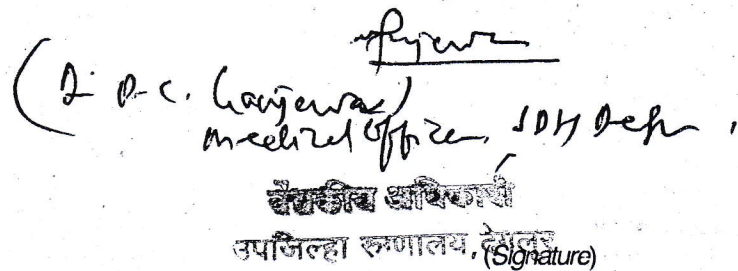 (Dr. D. C. Ganjewar)
Medical Officer, SDH Deglur,
वैद्यकीय अधिकारी
उपजिल्हा रुग्णालय, देगलूर
(Signature)